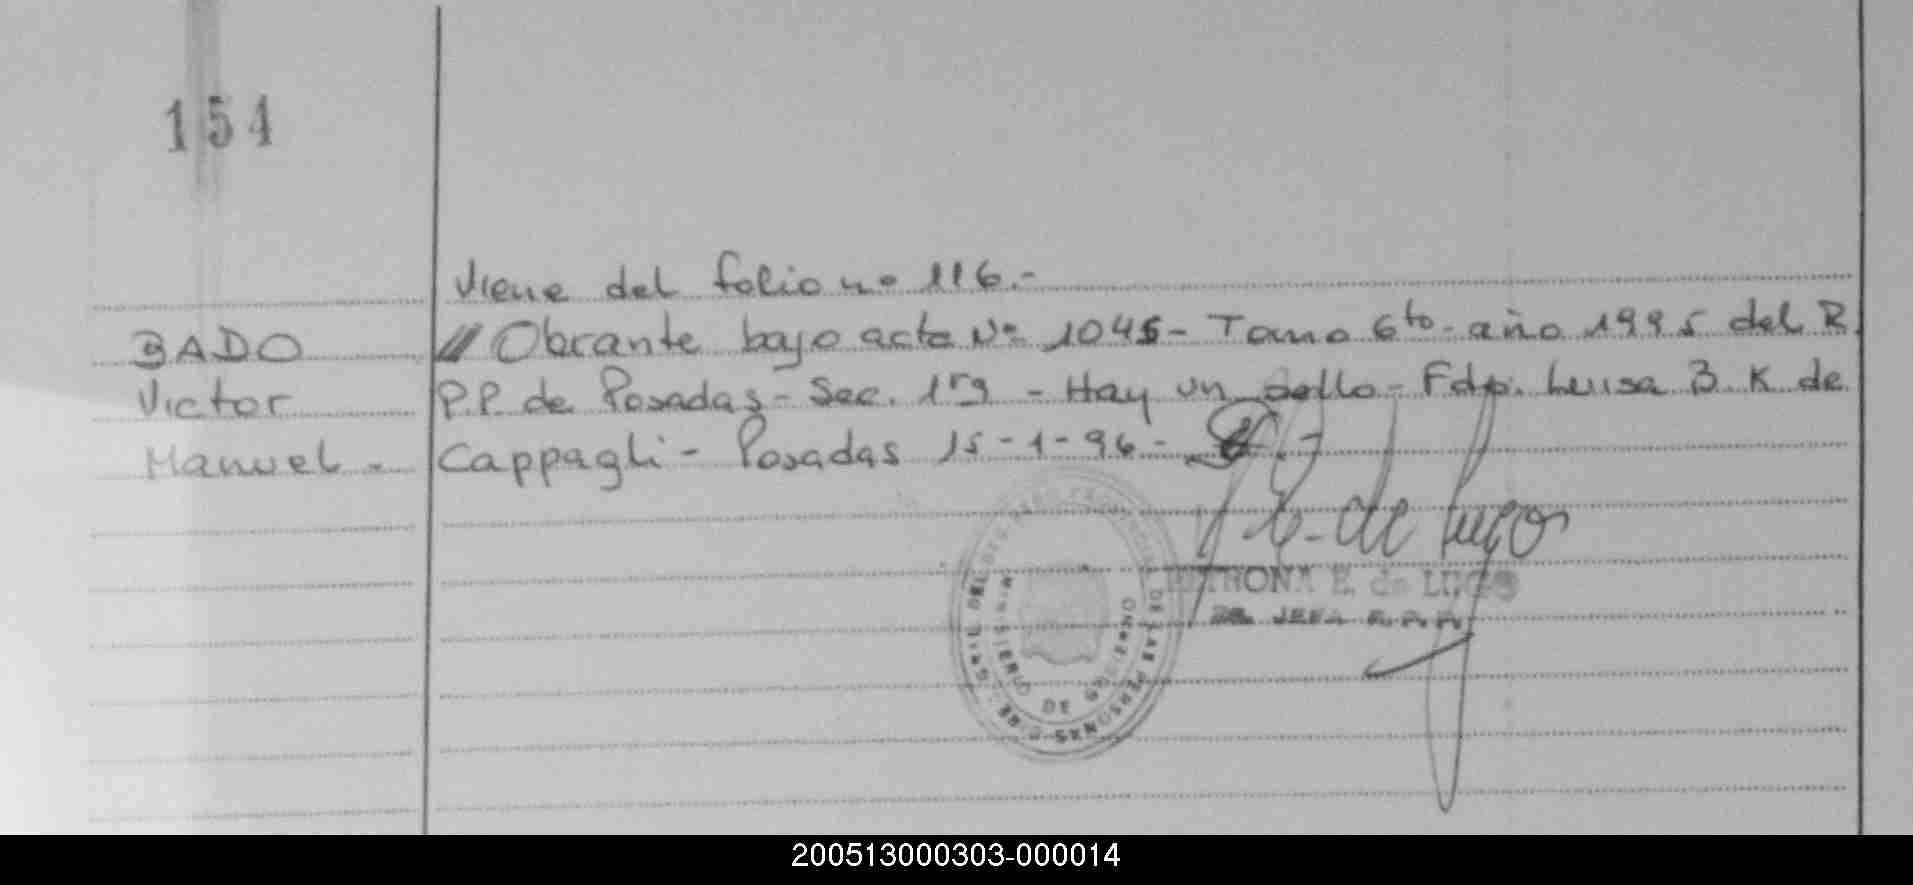 154
Viene del folio no 116.-
BADO Victor Manuel.-
// Obrante bajo acta Nº 1045- Tomo 6to- año 1995 del R.
P.P. de Posadas- Sec. 1ra - Hay un sello- Fdo. Luisa B. K de
Cappagli- Posadas 15-1-96-
E. de Lugo
PETRONA E. de LUGO
JEFA R.P.P.
DE LAS PERSONAS
MINISTERIO DE GOBIERNO
200513000303-000014